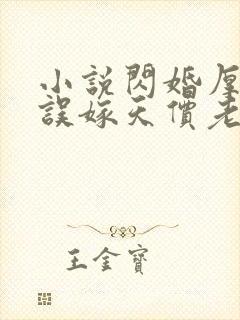 小說閃婚厚
誤嫁天價老
王金寶